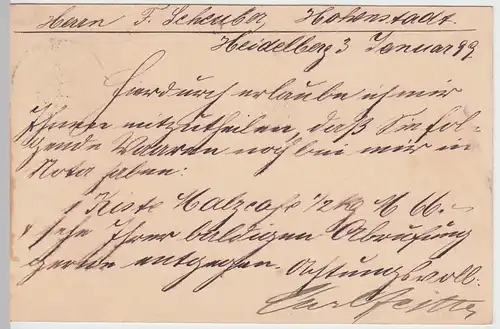 Herrn F. Scheuber Hohenstadt.
Heidelberg 3 Januar 99.
Hierdurch erlaube ich mir
Ihnen mitzutheilen, daß Sie fol-
gende Waaren noch bei mir in
Nota haben:
1 Kiste Malzcafe 1/2 Kg M 66.-
sehe Ihrer baldigen Abrufung
gerne entgegen. Achtungsvoll.
Carl